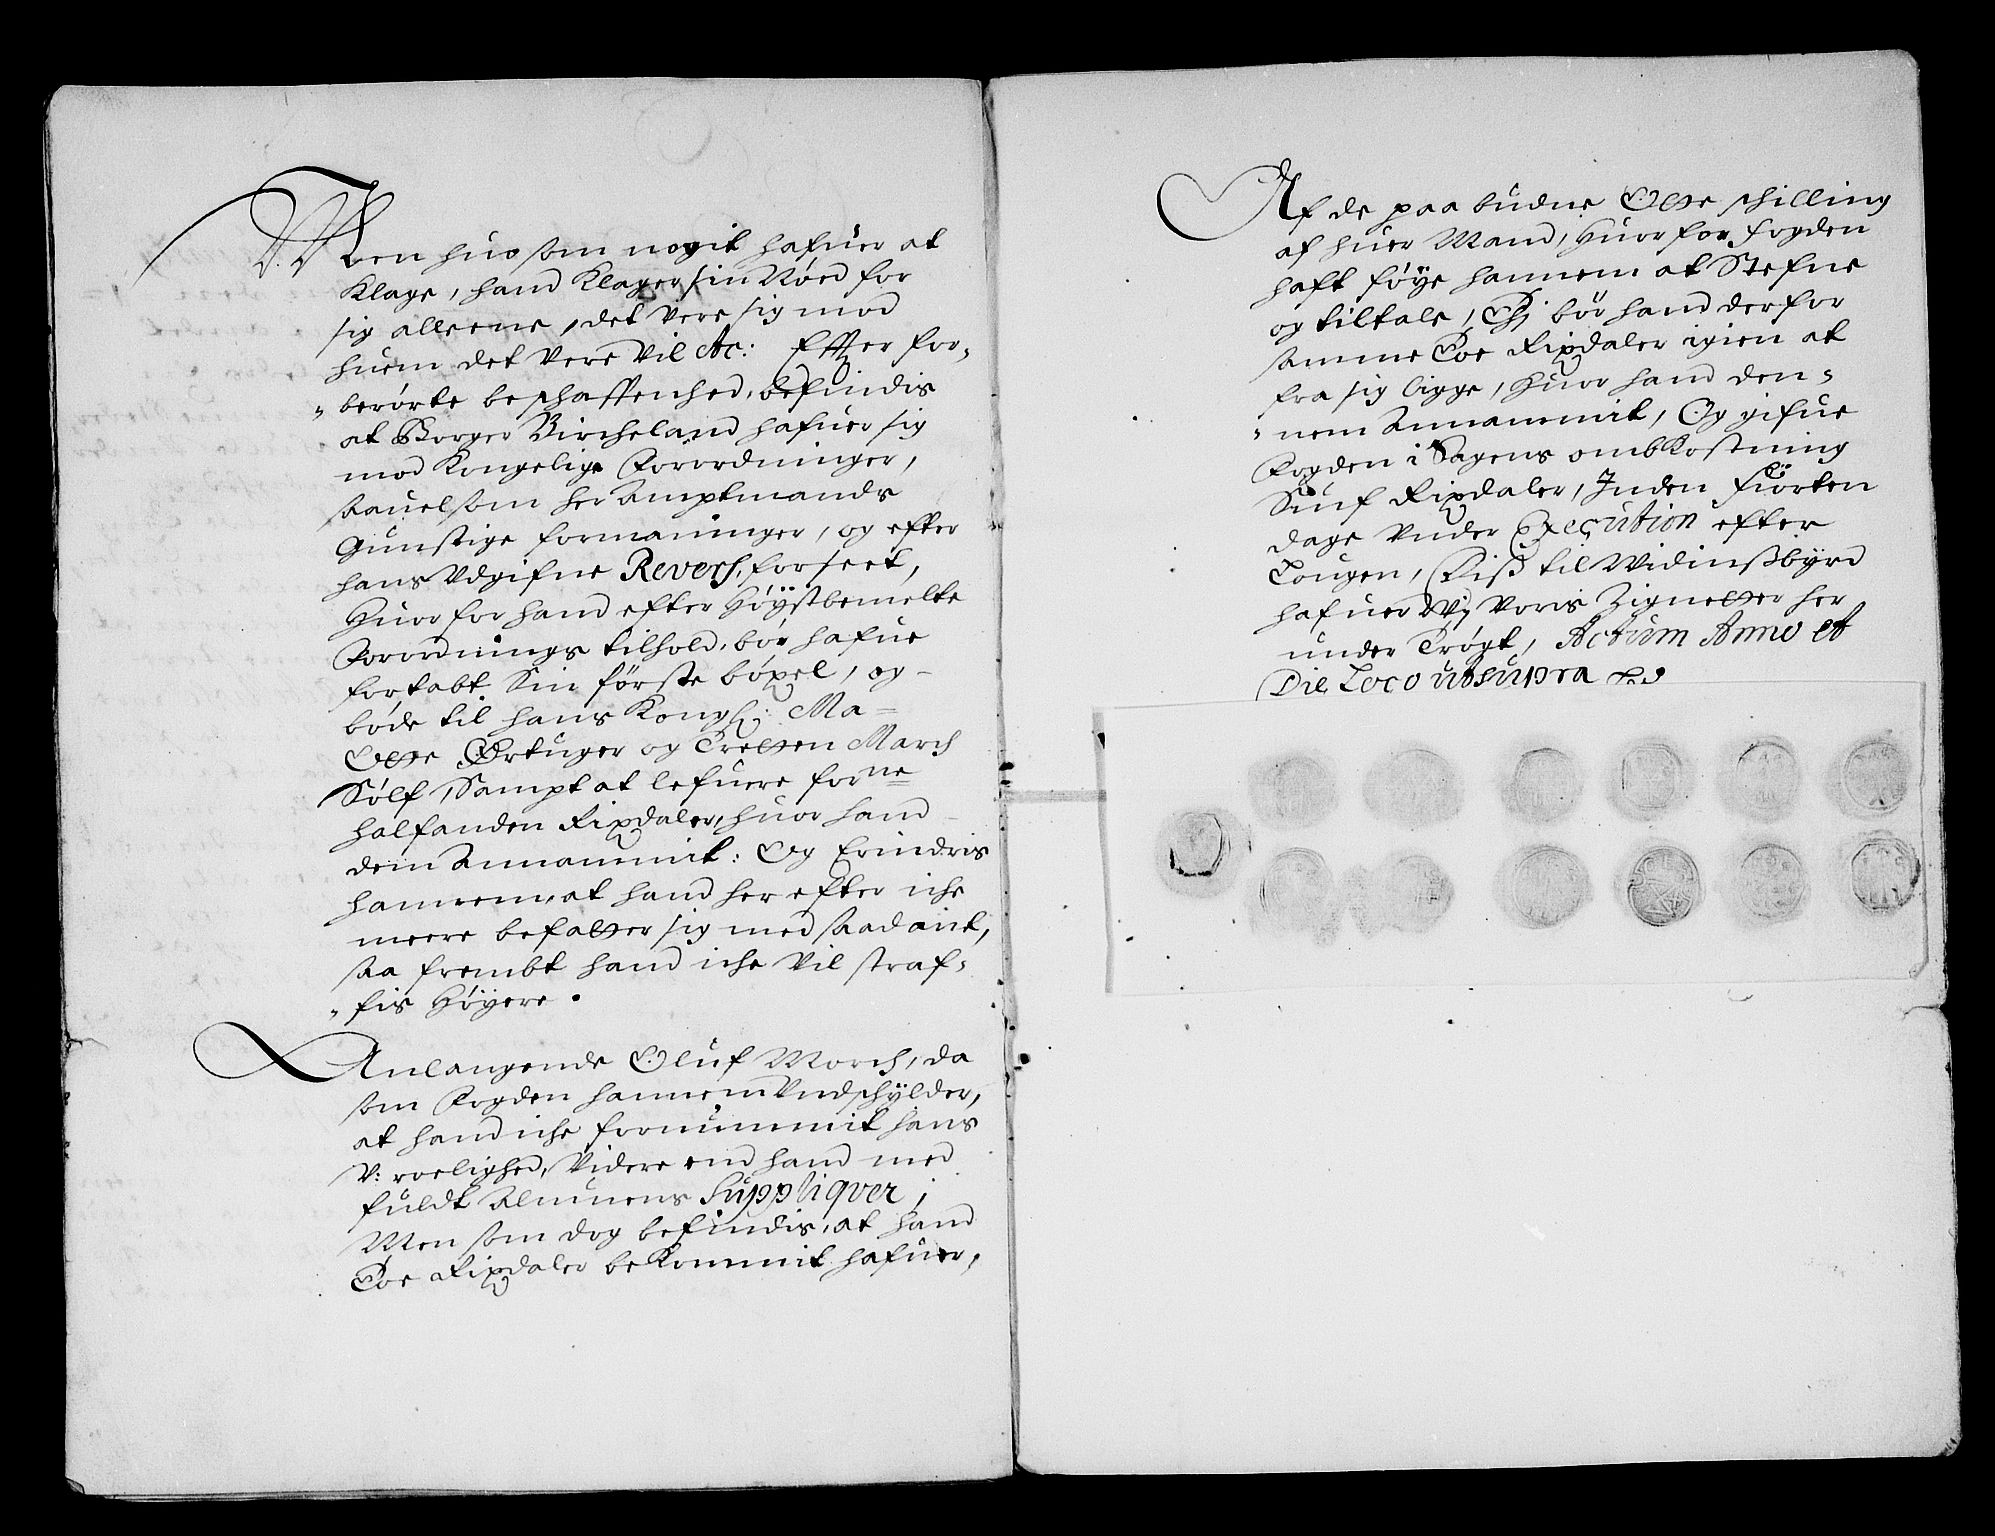 Men huo som nogit hafuer at
Klage, hand Klager sin Nöed for
sig alleene, det vere sig mod
huem det vere vil &c: Effter for-
berörte beschaffenhed, befindis
at Borger Bircheland hafuer sig
mod Kongelige Forordninger,
saauelsom her Amptmands
Gunstige formaninger, og efter
hans Udgifne Revers, forseet,
Huorfor hand efter Höÿstbemelte
Forordnings tilhold, bör hafue
fortabt Sin förste böxel, og
böde til hans Kongl: Ma-
Otte Örtuger og Tretten March
Sölf, Sampt at lefuere forne
halfanden Rixdaler, huor hand
dem Annammit: Og Erindris
hannem, at hand her efter iche
meere befatter sig med saadant,
saa frembt hand iche vil straf-
fis Höyere.
Anlangende Oluf Morch, da
som Fogden hannem Undschÿlder,
at hand iche fornummit hans
V: roelighed, Videre end hand med
fuldt Almuens Suppliqver;
Men som dog befindis, at hand
Toe Rixdaler beKommit hafuer,
Af de paabudne Otte schilling
af huer Mand, Huorfor fogden
haft föye hannem at Stefne
og tiltale, Thj bör hand derfor
samme Toe Rixdaler igien at
fra sig ligge, Huor hand den-
nem Annammit, Og gifue
Fogden i Sagens ombKostning
Sex Rixdaler, Inden fiörten
dage under Execution efter
Lougen, Diß til Widinßbÿrd
hafuer Wj Voris Zignetter her
under Trögt, Actum Anno et
Die, Loco ut supra